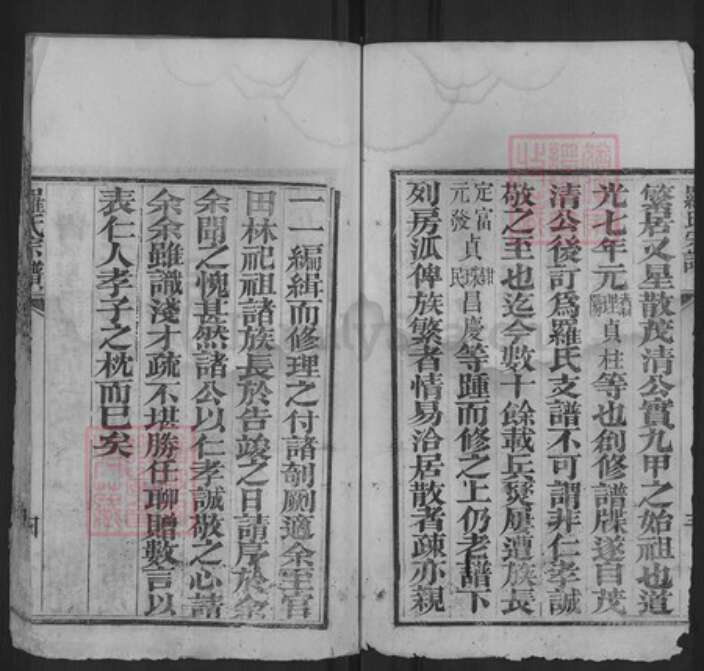 繁居又星散茂清公實九甲之始祖也道
光七年元理貞柱等也創修譜牒遂自茂
清公後訂爲羅氏支譜不可謂非仁孝誠
敬之至也迄今數十餘載兵燹屢遭族長
定富貞昌慶等踵而修之上仍老譜下
元發珠民
列房派俾族繁者情易洽居散者疎亦親
一一編緝而修理之付諸剞劂適余至官
田林祀祖諸族長於告竣之日請序於余
余聞之愧甚然諸公以仁孝誠敬之心諸
余余雖識淺才疏不堪勝任聊贈數言以
表仁人孝子之忱而已矣
羅氏宗譜
四